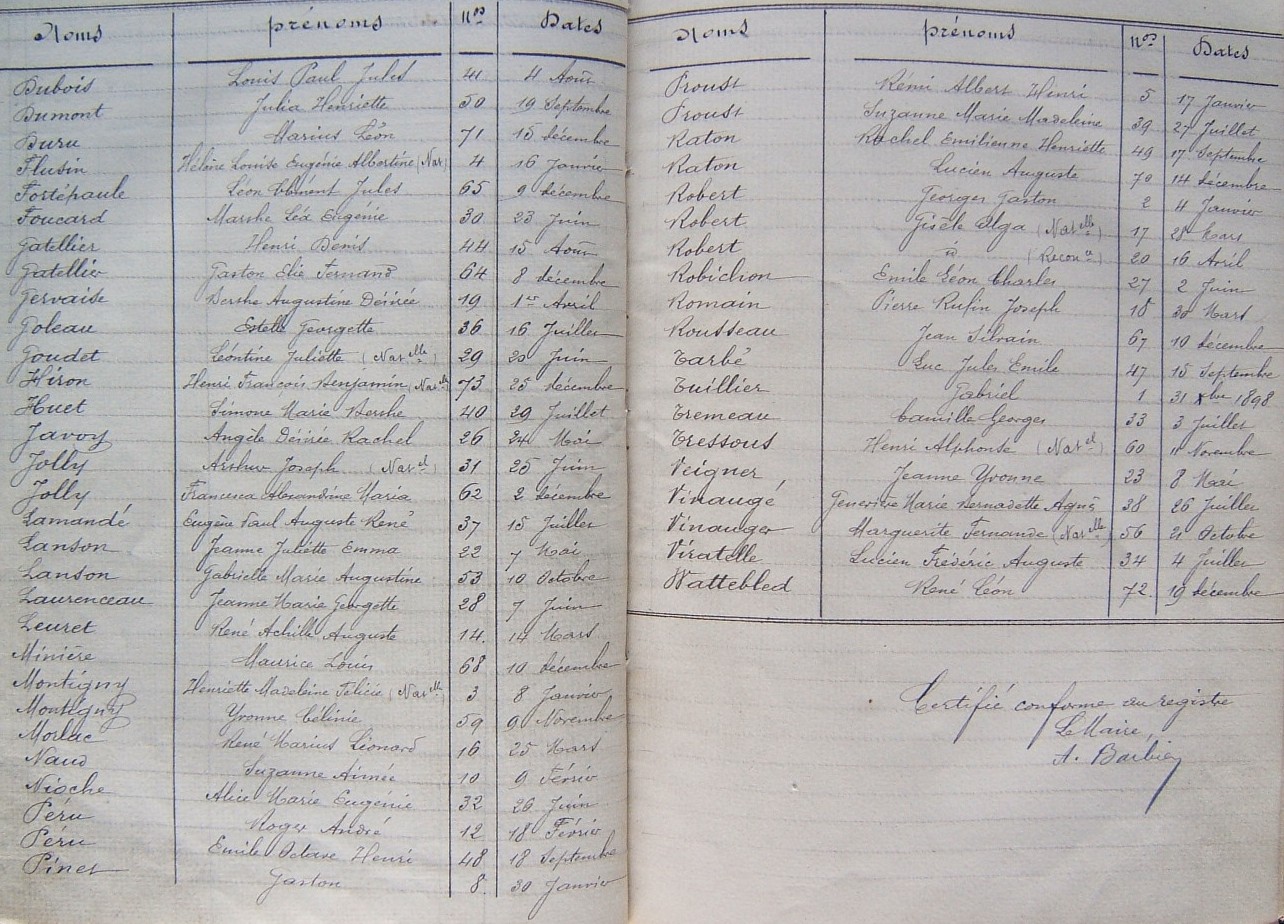 Noms prénoms Nos Dates
Dubois Louis Paul Jules 41 4 Août
Dumont Julia Henriette 50 19 Septembre
Duru Marius Léon 71 15 décembre
Flusin Hélène Louise Eugénie Albertine (Nat) 4 16 Janvier
Fortépaule Léon Clément Jules 65 9 décembre
Foucard Marthe Léa Eugénie 30 23 Juin
Gatellier Henri Denis 44 15 Août
Gatellier Gaston Elie Fernand 64 8 décembre
Gervaise Berthe Augustine Désirée 19 1er Avril
Goleau Estelle Georgette 36 16 Juillet
Goudet Léontine Juliette (Natelle) 29 20 Juin
Hiron Henri François Benjamin (Natel) 73 25 décembre
Huet Simone Marie Berthe 40 29 Juillet
Javoy Angèle Désirée Rachel 26 24 Mai
Jolly Arthur Joseph (Natel) 31 25 Juin
Jolly Francesca Alexandrine Maria 62 2 décembre
Lamandé Eugène Paul Auguste René 37 15 Juillet
Lanson Jeanne Juliette Emma 22 7 Mai
Lanson Gabrielle Marie Augustine 53 10 Octobre
Laurenceau Jeanne Marie Georgette 28 7 Juin
Leuret René Achille Auguste 14. 14 Mars
Minière Maurice Louis 68 10 décembre
Montigny Henriette Madeleine Félicie (Natelle) 3 8 Janvier
Montigny Yvonne Célinie 59 9 Novembre
Morlac René Marius Léonard 16 25 Mars
Naud Suzanne Aimée 10 9 Février
Nioche Alice Marie Eugénie 32 26 Juin
Péru Roger André 12 18 Février
Péru Emile Octave Henri 48 18 Septembre
Pinet Gaston 8. 30 Janvier
Noms prénoms Nos Dates
Proust Rémi Albert Henri 5 17 Janvier
Proust Suzanne Marie Madeleine 39 27 Juillet
Raton Rachel Emilienne Henriette 49 17 Septembre
Raton Lucien Auguste 70 14 décembre
Robert Georges Gaston 2 4 Janvier
Robert Gisèle Olga (Natelle) 17 28 Mars
Robert id (Recone) 20 16 Avril
Robichon Emile Léon Charles 27 2 Juin
Romain Pierre Rufin Joseph 18 30 Mars
Rousseau Jean Silvain 67 10 décembre
Tarbé Luc Jules Emile 47 15 Septembre
Tuillier Gabriel 1 31 Xbre 1898
Tremeau Camille Georges 33 3 Juillet
Tressous Henri Alphonse (Natel) 60 11 Novembre
Veigner Jeanne Yvonne 23 8 Mai
Vinaugé Geneviève Marie Bernadette Agnès 38 26 Juillet
Vinauger Marguerite Fernande (Natelle) 56 21 Octobre
Viratelle Lucien Frédéric Auguste 34 4 Juillet
Wattebled René Léon 72. 19 décembre
Certifié conforme au registre
Le Maire,
A. Barbier